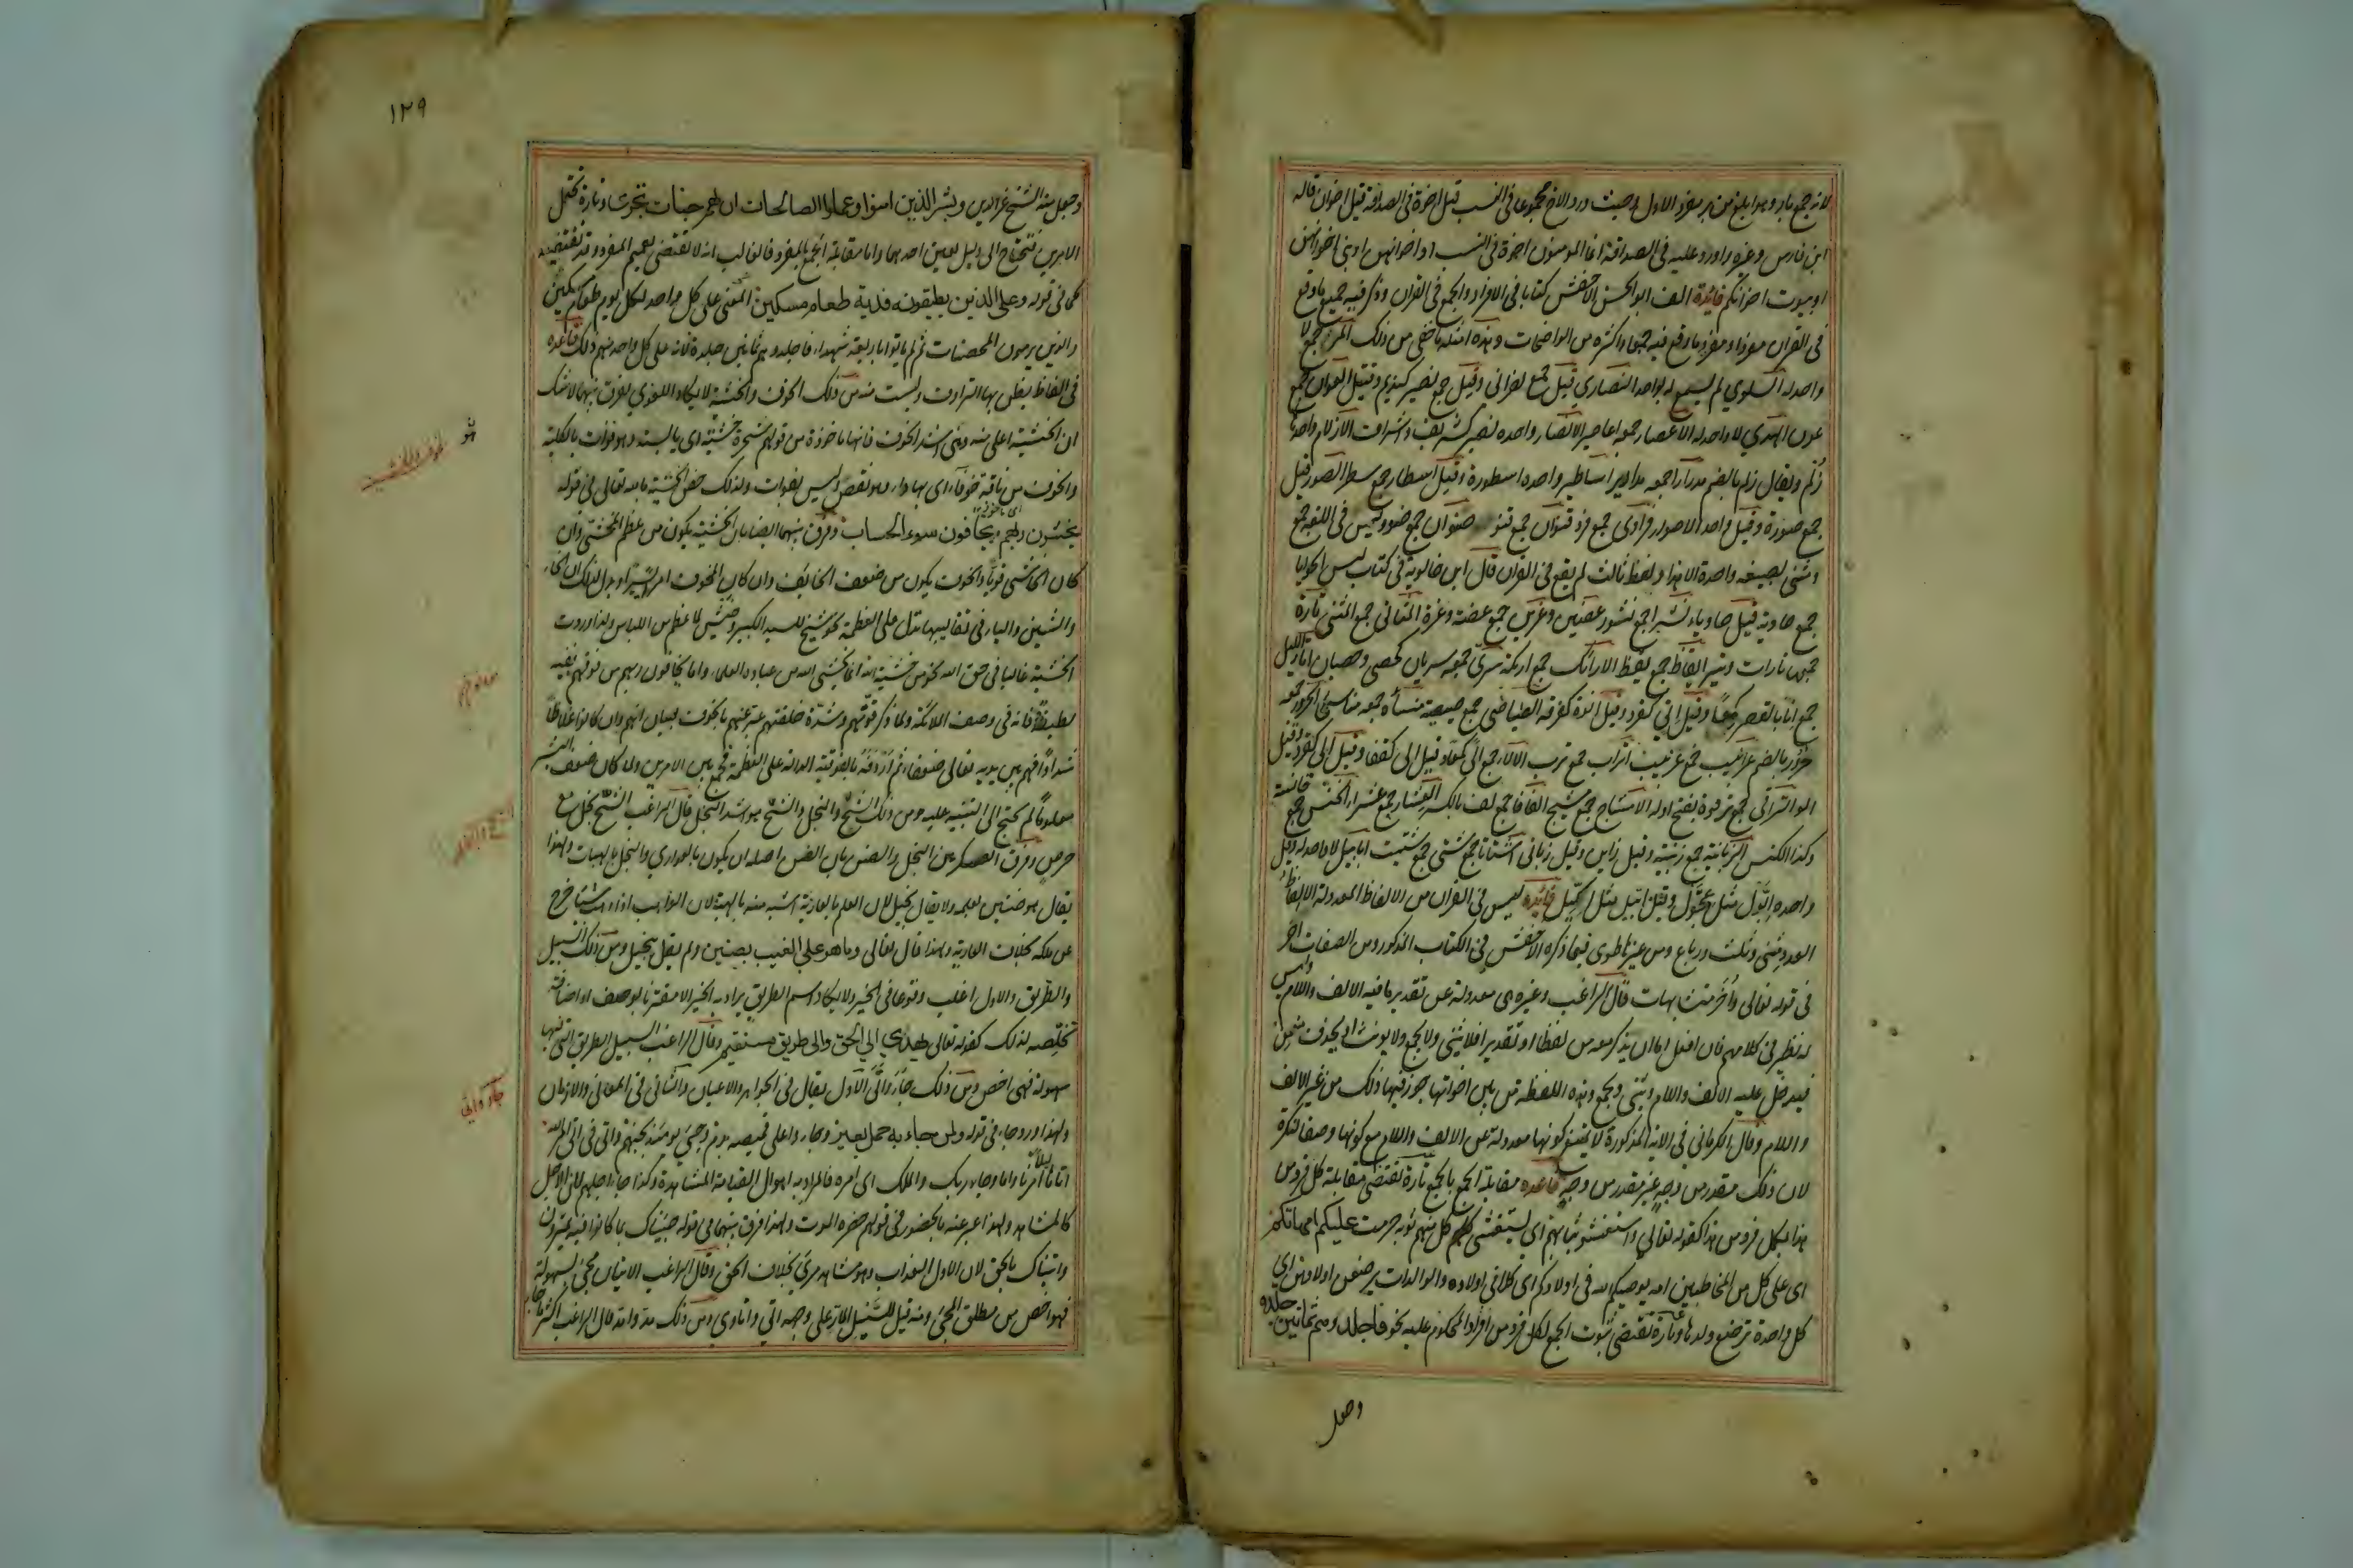 لانه جمع بار وهو ابلغ من بر مفرد الاول وحيث ورد الاخ مجموعا في النسب قيل اخوة في الصداقة قيل اخوان قاله
ابن فارس وغيره واورد عليه في الصداقة انما المومنون اخوة في النسب او اخوانهن او بني اخوانهن
او بيوت اخوانكم فائدة الف ابو الحسن الاخفش كتابا في الافراد والجمع في القران وذكر فيه جميع ما وقع
في القران مفردا ومفرد ما وقع فيه جمعا واكثره من الواضحات وهذه امثلة ما خفي من ذلك المن جمع لا
واحد له السلوي لم يسمع له بواحد النصاري قيل جمع نصراني وقيل جمع نصير كنديم وقبيل العوان جمع
عون الهدي لا واحد له الاعصار جمعه اعاصير الانصار واحده نصير كشريف واشراف الازلام واحدها
زلم ويقال زلم بالضم مدرارا جمعه مدارير اساطير واحده اسطورة وقيل اسطار جمع سطر الصور قيل
جمع صورة وقيل واحد الاصوار فرادى جمع فرد قنوان جمع قنو صنوان جمع صنو وليس في اللغة جمع
ومثنى بصيغة واحدة الا هذان ولفظ ثالث لم يقع في القران قال ابن خالويه في كتاب ليس الحوايا
جمع حاوية قيل حاوياء نشرا جمع نشور عضين وعزين جمع عضة وعزة المثاني جمع المثنى تارة
جمعها تارات وتير ايقاظ جمع يقظ الارائك جمع اريكة سرى جمعه سريان كخصي وخصيان اناء الليل
جمع انا بالقصر كمعا وقيل اني كقرد وقيل انوة كفرقة الصياصي جمع صيصية منسأة جمعه مناسئ الحرور جمعه
حرور بالضم غرابيب جمع غربيب اتراب جمع ترب الالاء جمع الى كمعا وقيل الى كقفا وقيل الى كقرد وقيل
الو التراقي جمع ترقوة بفتح اوله الامشاج جمع مشيج الفافا جمع لف بالكسر العشار جمع عشراء الخنس جمع خانسة
وكذا الكنس الزبانية جمع زبنية وقيل زابن وقيل زباني اشتاتا جمع شتى جمع شتيت ابابيل لا واحد له وقيل
واحده ابول مثل عجول وقيل ابيل مثل اكليل فائدة ليس في القران من الالفاظ المعدولة الا الفاظ
العدد مثنى وثلث ورباع ومن غيرها طوى فيما ذكره الاخفش في الكتاب المذكور ومن الصفات اخر
في قوله تعالى واخر متشابهات قال الراغب وغيره هي معدولة عن تقدير ما فيه الالف واللام وليس
له نظير في كلامهم فان افعل اما ان يذكر معه من لفظا او تقديرا فلا يثنى ولا يجمع ولا يونث او يحذف منه من
فيدخل عليه الالف واللام ويثنى ويجمع وهذه اللفظة من بين اخواتها جوز فيها ذلك من غير الالف
واللام وقال الكرماني في الاية المذكورة لا يمتنع كونها معدولة عن الالف واللام مع كونها وصفا لنكرة
لان ذلك مقدر من وجه غير مقدر من وجه قاعدة مقابلة الجمع بالجمع تارة تقتضي مقابلة كل فرد من
هذا بكل فرد من هذا كقوله تعالى واستغشوا ثيابهم اي استغشى كل منهم ثوبه حرمت عليكم امهاتكم
اي على كل من المخاطبين امه يوصيكم الله في اولادكم اي كلا في اولاده والوالدات يرضعن اولادهن اي
كل واحدة ترضع ولدها وتارة تقتضي ثبوت الجمع لكل فرد من افراد المحكوم عليه نحو فاجلدوهم ثمانين جلدة
وجعل
١٢٩
وجعل منه الشيخ عز الدين وبشر الذين امنوا وعملوا الصالحات ان لهم جنات تجري وتارة تحتمل
الامرين فتحتاج الى دليل يعين احدهما واما مقابلة الجمع بالمفرد فالغالب انه لا تقتضي تعميم المفرد وقد تقتضيه
كما في قوله وعلى الذين يطيقونه فدية طعام مسكين المعنى على كل واحد لكل يوم طعام مسكين
والذين يرمون المحصنات ثم لم ياتوا باربعة شهداء فاجلدوهم ثمانين جلدة لانه على كل واحد منهم ذلك قاعدة
في الفاظ يظن بها الترادف وليست منه من ذلك الخوف والخشية لا يكاد اللغوي يفرق بينهما لا شك
ان الخشية اعلى منه وهي اشد الخوف فانها ماخوذة من قولهم شجرة خشية اي يابسة وهو فوات بالكلية
والخوف من ناقة خوفاء اي بها داء وهو نقص وليس بفوات ولذلك خص الخشية بالله تعالى في قوله
يخشون ربهم ويخافون سوء الحساب وفرق بينهما ايضا بان الخشية يكون من عظم المخشي وان
كان الخاشي قويا والخوف يكون من ضعف الخائف وان كان المخوف امرا يسيرا ويدل لذلك ان الخاء
والشين والياء في تقاليبها تدل على العظمة نحو شيخ للسيد الكبير وخيش لما غلظ من اللباس ولذا وردت
الخشية غالبا في حق الله نحو من خشية الله انما يخشى الله من عباده العلماء واما يخافون ربهم من فوقهم ففيه
لطيفة فانه في وصف الملائكة ولما ذكر قوتهم وشدة خلقتهم عبر عنهم بالخوف لبيان انهم وان كانوا غلاظا
شدادا فهم بين يديه تعالى ضعفاء ثم اردفه بالفوقية الدالة على العظمة فجمع بين الامرين ولما كان ضعف البشر
معلوما لم يحتج الى التنبيه عليه ومن ذلك الشح والبخل والشح هو اشد البخل قال الراغب الشح بخل مع
حرص وفرق العسكري بين البخل والضن بان الضن اصله ان يكون بالعواري والبخل بالهبات ولهذا
يقال هو ضنين بعلمه ولا يقال بخيل لان العلم بالعارية اشبه منه بالهبة لان الواهب اذا وهب شيئا خرج
عن ملكه بخلاف العارية ولهذا قال تعالى وما هو على الغيب بضنين ولم يقل ببخيل ومن ذلك السبيل
والطريق والاول اغلب وقوعا في الخير ولا يكاد اسم الطريق يراد به الخير الا مقترنا بوصف او اضافة
تخلصه لذلك كقوله تعالى يهدي الى الحق والى طريق مستقيم وقال الراغب السبيل الطريق التي فيها
سهولة فهي اخص ومن ذلك جاء واتى الاول يقال في الجواهر والاعيان والثاني في المعاني والازمان
ولهذا ورد جاء في قوله ولمن جاء به حمل بعير وجاءوا على قميصه بدم وجيء يومئذ بجهنم واتى في اتى امر الله
اتاها امرنا واما وجاء ربك والملك اي امره فالمراد به اهوال القيامة المشاهدة وكذا جاء اجلهم لان الاجل
كالمشاهد ولهذا عبر عنه بالحضور في قولهم حضره الموت ولهذا فرق بينهما في قوله جئناك بما كانوا فيه يمترون
واتيناك بالحق لان الاول العذاب وهو مشاهد مرئي بخلاف الحق وقال الراغب الاتيان مجيء بسهولة
فهو اخص من مطلق المجيء ومنه قيل للسيل المار على وجهه اتي واتاوي ومن ذلك مد وامد قال الراغب اكثر ما جاء